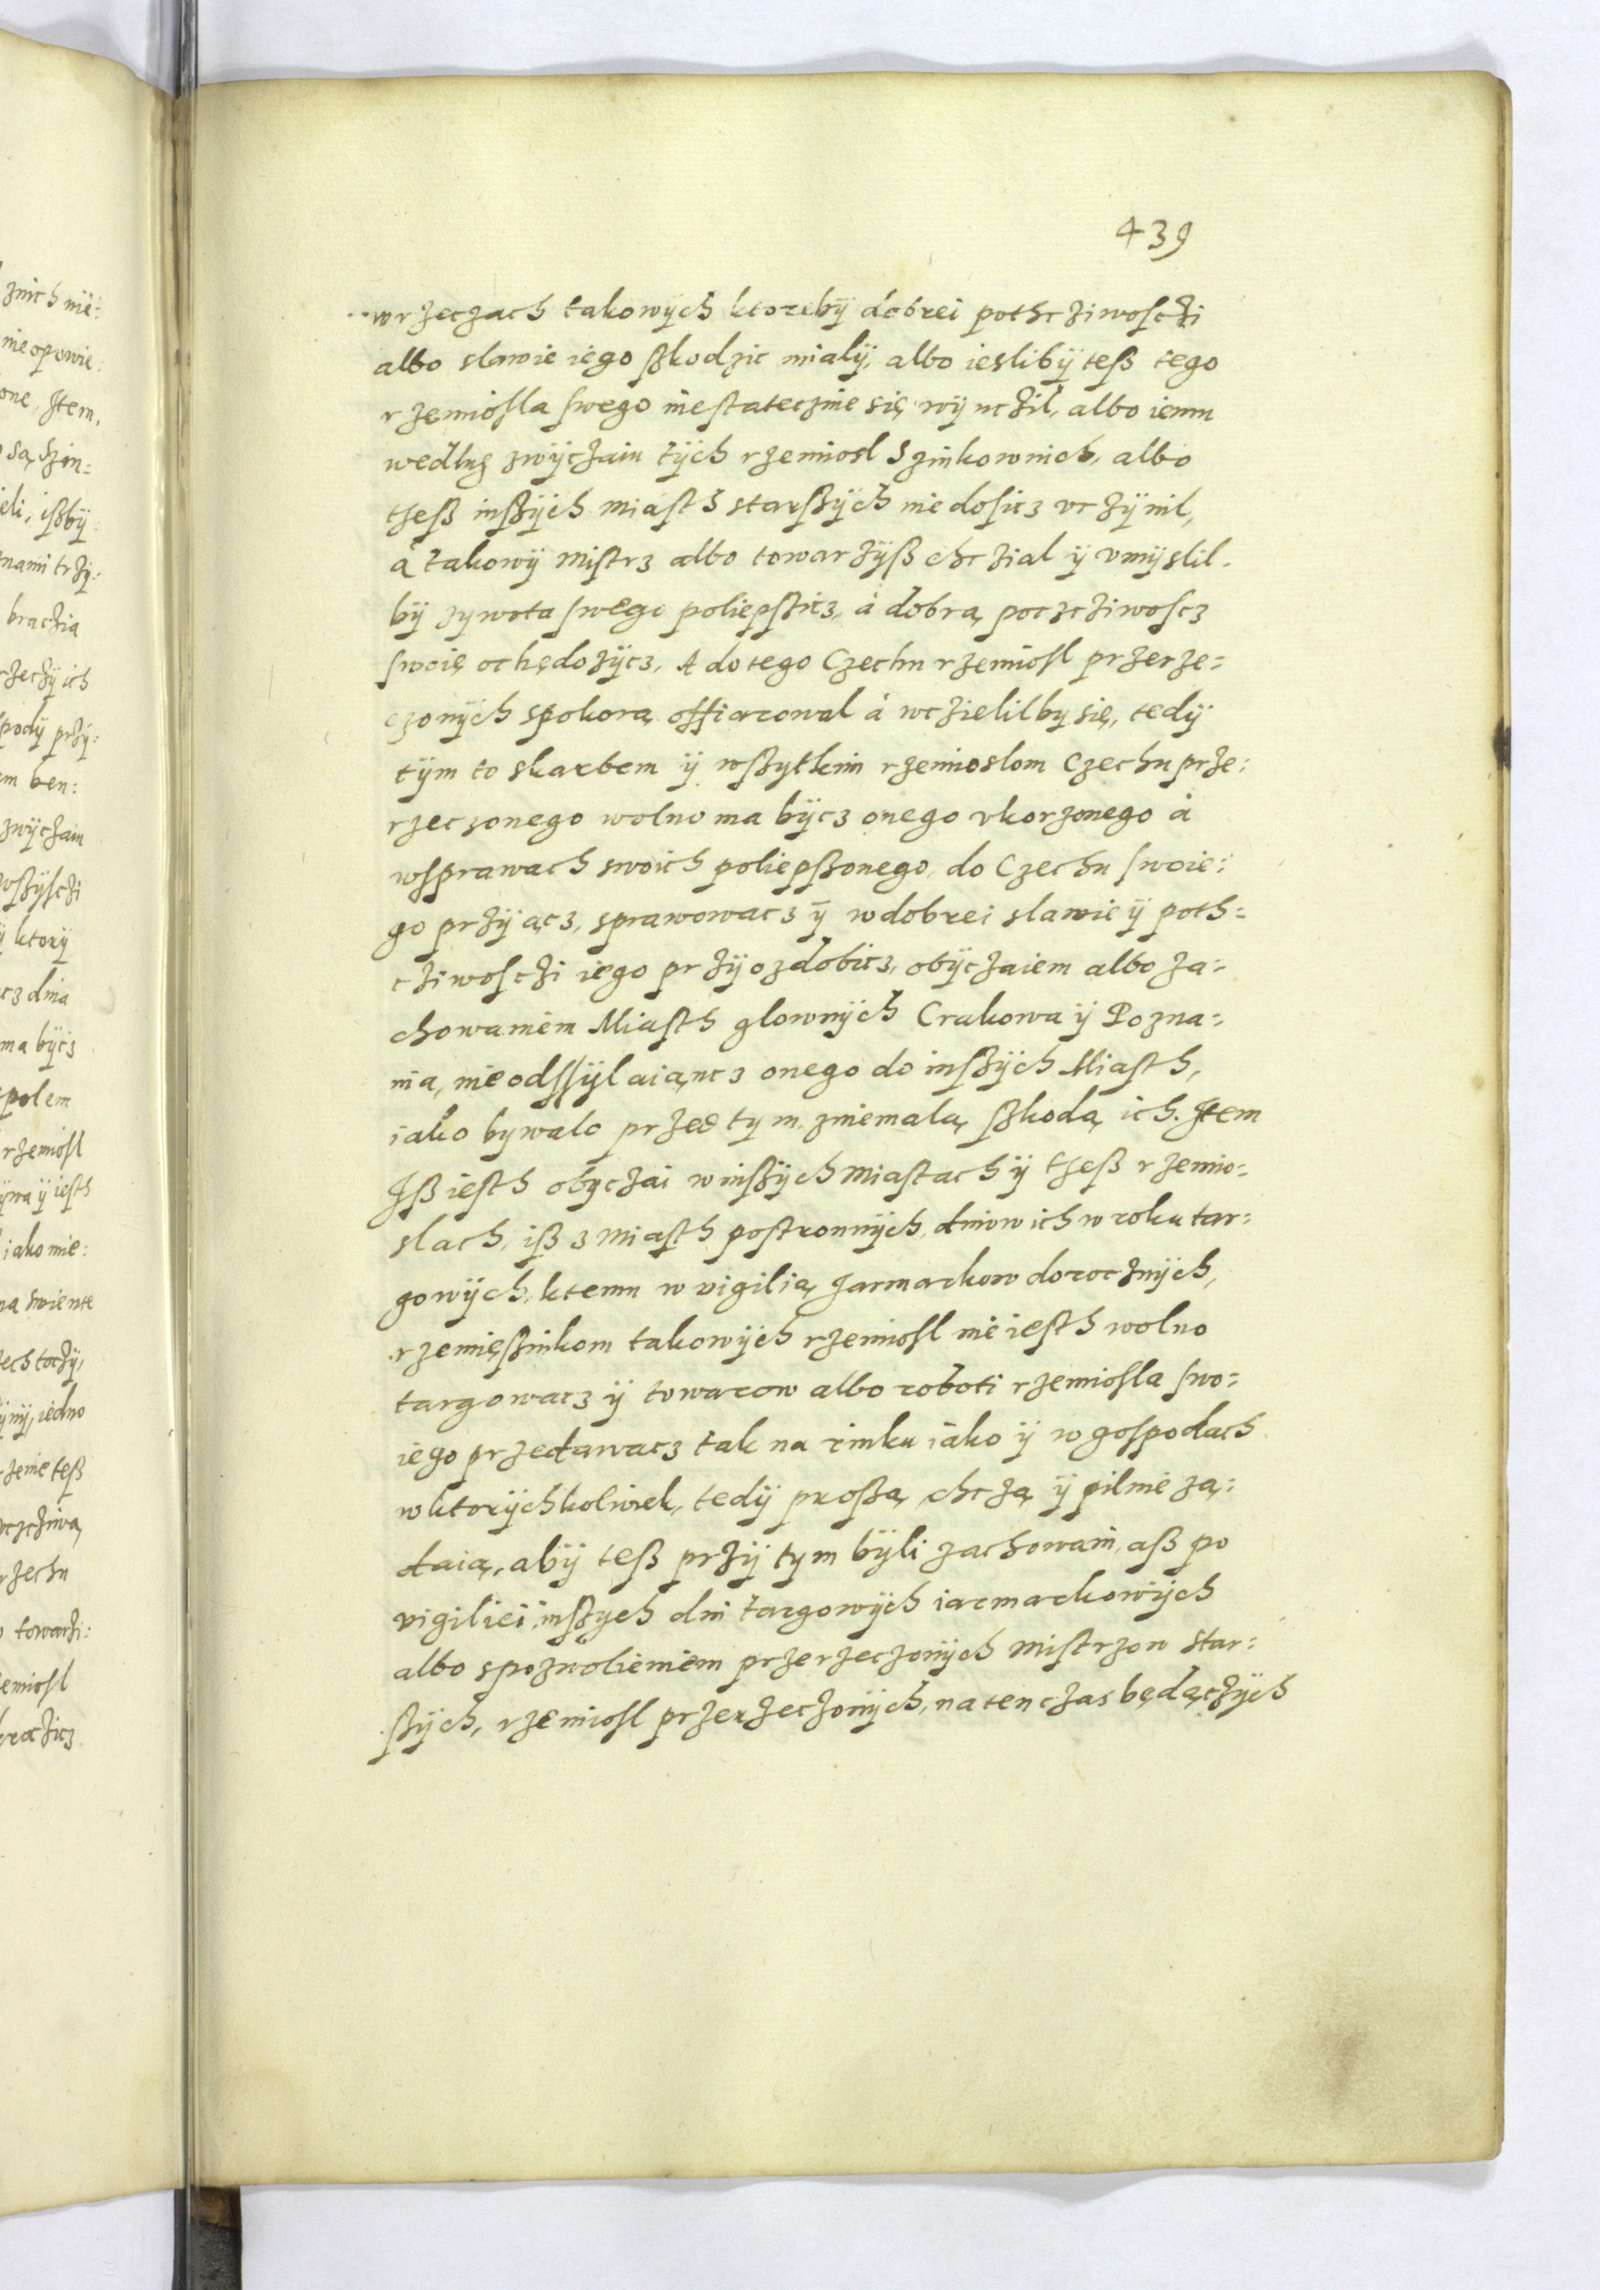 439
wrzeczach takowÿch ktorebÿ dobrei pothcziwosczi
albo slawie iego ßkodzic mialÿ, albo ieslibÿ teß tego
rzemiosla swego niestatecznie się wÿuczil, albo iemu
wedlug zwÿczaiu tÿch rzemiosl Szinkownich, albo
tzeß inßÿch miasth starßÿch niedosicz vczÿnil,
à takowÿ mistrz albo towarzÿß chczial ÿ vmÿslil-
bÿ zywota swego poliepßicz, à dobrą poczcziwoscz
swoię ochędozÿcz, A do tego Czechu rzemiosl przerze=
czonÿch spokorą offiarowal à wczielilby się, tedÿ
tÿm to skarbem ÿ wßytkim rzemioslom Czechu prze:
rzeczonego wolno ma bÿcz onego vkorzonego à
wsprawach swoich poliepßonego, do Czechu swoie:
go przÿącz, sprawowacz ÿ wdobrei slawie ÿ poth=
cziwosczi iego przÿozdobicz, obÿczaiem albo za=
chowaniem Miasth glownÿch Crakowa ÿ Pozna=
nia, nieodssÿlaiąncz onego do inßÿch Miasth,
iako bywalo przed tym zniemalą ßkodą ich. Item
Iß iesth obyczai winßÿch miastach ÿ tzeß rzemio=
slach, iß z miasth postronnÿch, dniow ich w roku tar=
gowÿch, ktemu w vigilią Jarmarkow dorocznÿch,
rzemięßnikom takowÿch rzemiosl nie iesth wolno
targowacz ÿ towarow albo roboti rzemiosla swo=
iego przedawacz tak na rinku iako ÿ w gospodach
wktorÿchkoliwiek, tedÿ proßą, chczą ÿ pilnie zą=
daią, abÿ teß przÿ tym bÿli zachowani, aß po
vigiliei inßych dni targowÿch iarmarkowÿch
albo spozwolieniem przerzeczonÿch mistrzow star=
ßÿch, rzemiosl przerzeczonÿch, natenczas będączÿch
znich nie:
nieopowie:
one, Item,
są, Szin=
eli, ißbÿ
nami trzÿ:
braczia
rzeczÿ ich
spodÿ przÿ:
m ben:
zwÿczaiu
wßÿsczi
ktorÿ
cz dnia
ma bÿcz
spolem
rzemiosl
ÿwa ÿ iesth
iako nie:
na swiente
ech toczÿ,
ÿnÿ, iedno
zenie teß
oczcziwą
czechu
towarzi:
emiosl